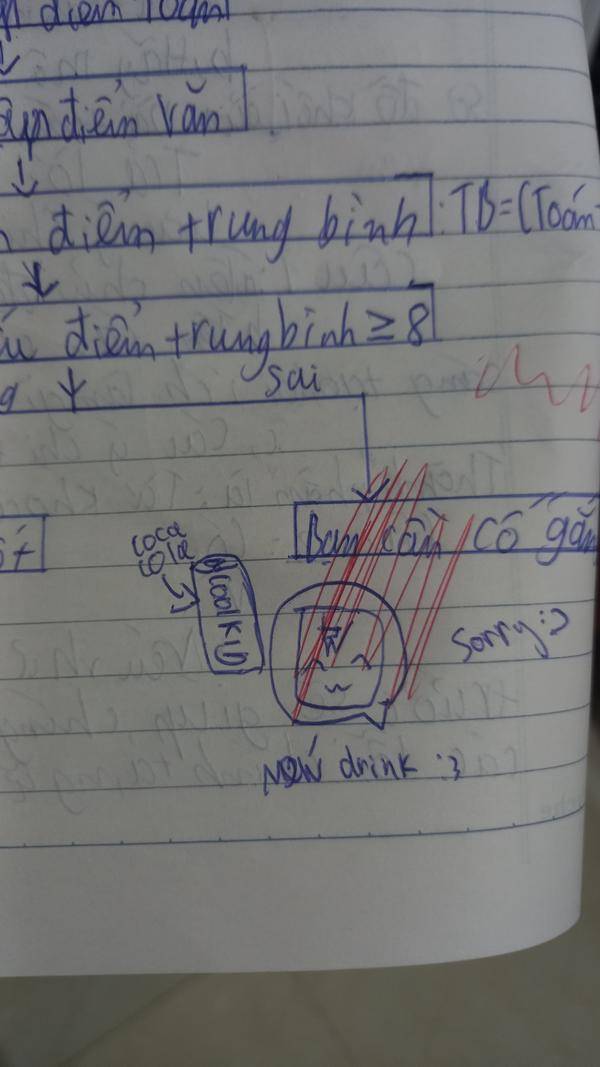 điểm Toán
điểm văn
điểm trung bình : TB=(Toán
điểm trung bình ≥ 8
sai
Bạn cần cố gắn
coca
cola
coolkid
sorry :>
NEW drink :3